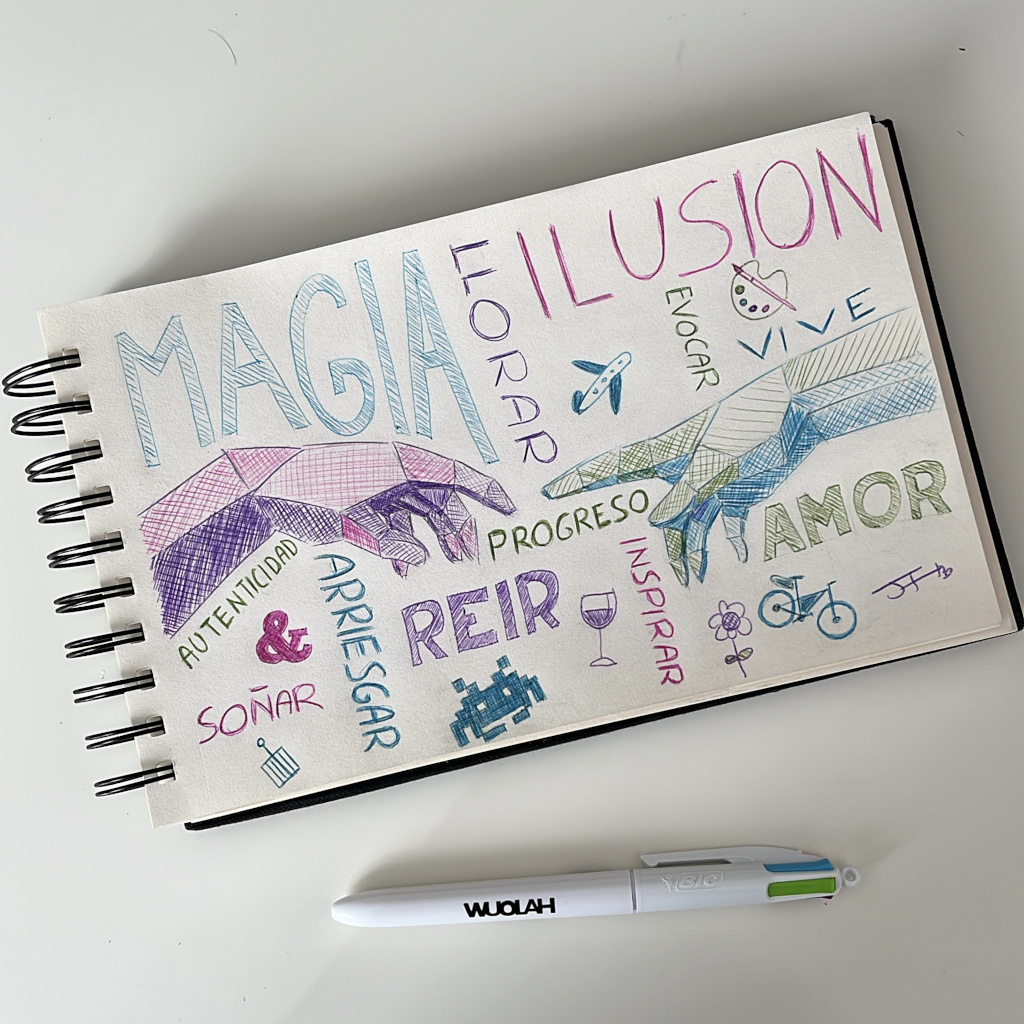 MAGIA
LLORAR
ILUSION
EVOCAR
VIVE
PROGRESO
AMOR
AUTENTICIDAD
&
ARRIESGAR
REIR
INSPIRAR
SOÑAR
BIC
WUOLAH